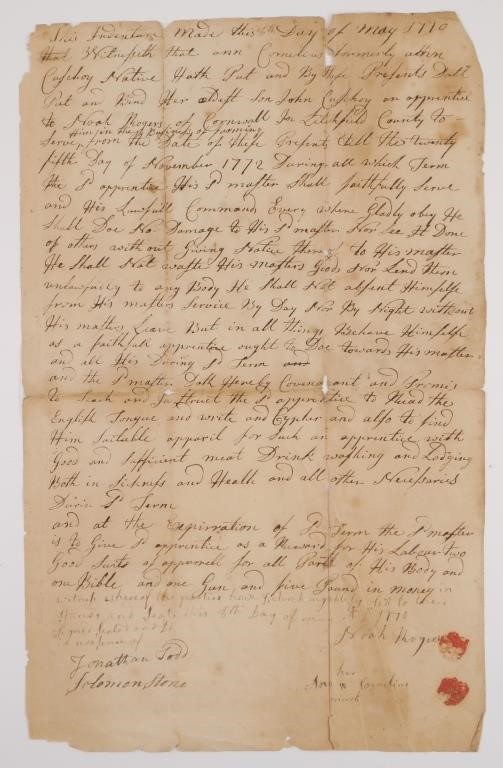 This Indenture Made this 8th Day of May 1770
that Witnesseth that ann Cornelius formerly ann
Cuschoy Native Hath Put and By these Presents Doth
Put an Bind Her Dest Son John Cuschoy an apprentice
to Noah Rogers of Cornwall In Litchfield County to
Him in the Business of farming
Serve from the Date of these Presents till the twenty
fifth Day of November 1772 During all which Term
the Sd apprentice His Sd master Shall faithfully Serve
and His Lawfull Command Every where Gladly obey He
Shall Doe No Damage to His Sd master Nor See It Done
of others without Giving Notice thereof to His master
He Shall Not waste His masters Goods Nor Lend them
unlawfully to any Body He Shall Not absent Himselfe
from His masters Service By Day Nor By Night without
His masters Leave But in all things Behave Himselfe
as a faithfull apprentice ought to Doe towards His master
and all His During Sd Term
and the Sd master Doth Hereby Covenant and Promis
to Teach and Instruct the Sd apprentice to Read the
English Tongue and write and Cypher and also to find
Him Suitable apparil for Such an apprentice with
Good and Sufficient meat Drink washing and Lodging
Both in Sickness and Health and all other Necessaries
Durin Sd Term
and at the Expirration of Sd Term the Sd master
is to Give Sd apprentice as a Reward for His Labour two
Good Suits of apparrell for all Parts of His Body and
one Bible and one Gun and five Pound in money
witness whereof the parties have set to their
Hands and Seals this 8th Day of may 1770
Signed Sealed and
in presence of
Noah Rogers
Jonathan Todd
Solomon Stone
her
Ann x Cornelius
mark